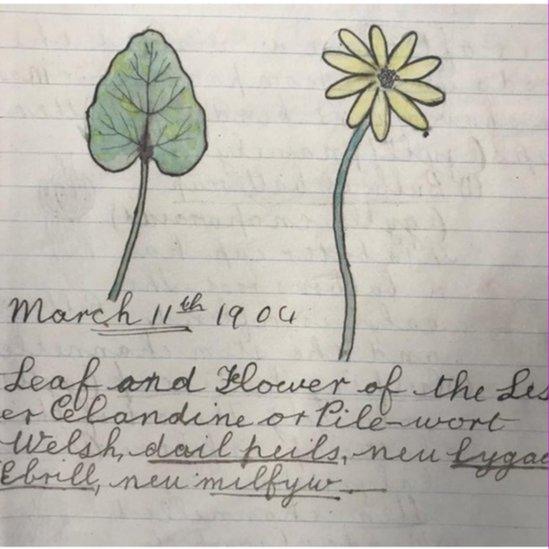 March 11th 1904
Leaf and Flower of the Les
er Celandine or Pile-wort
Welsh, dail peils, neu Lygad
Ebrill, neu milfyw